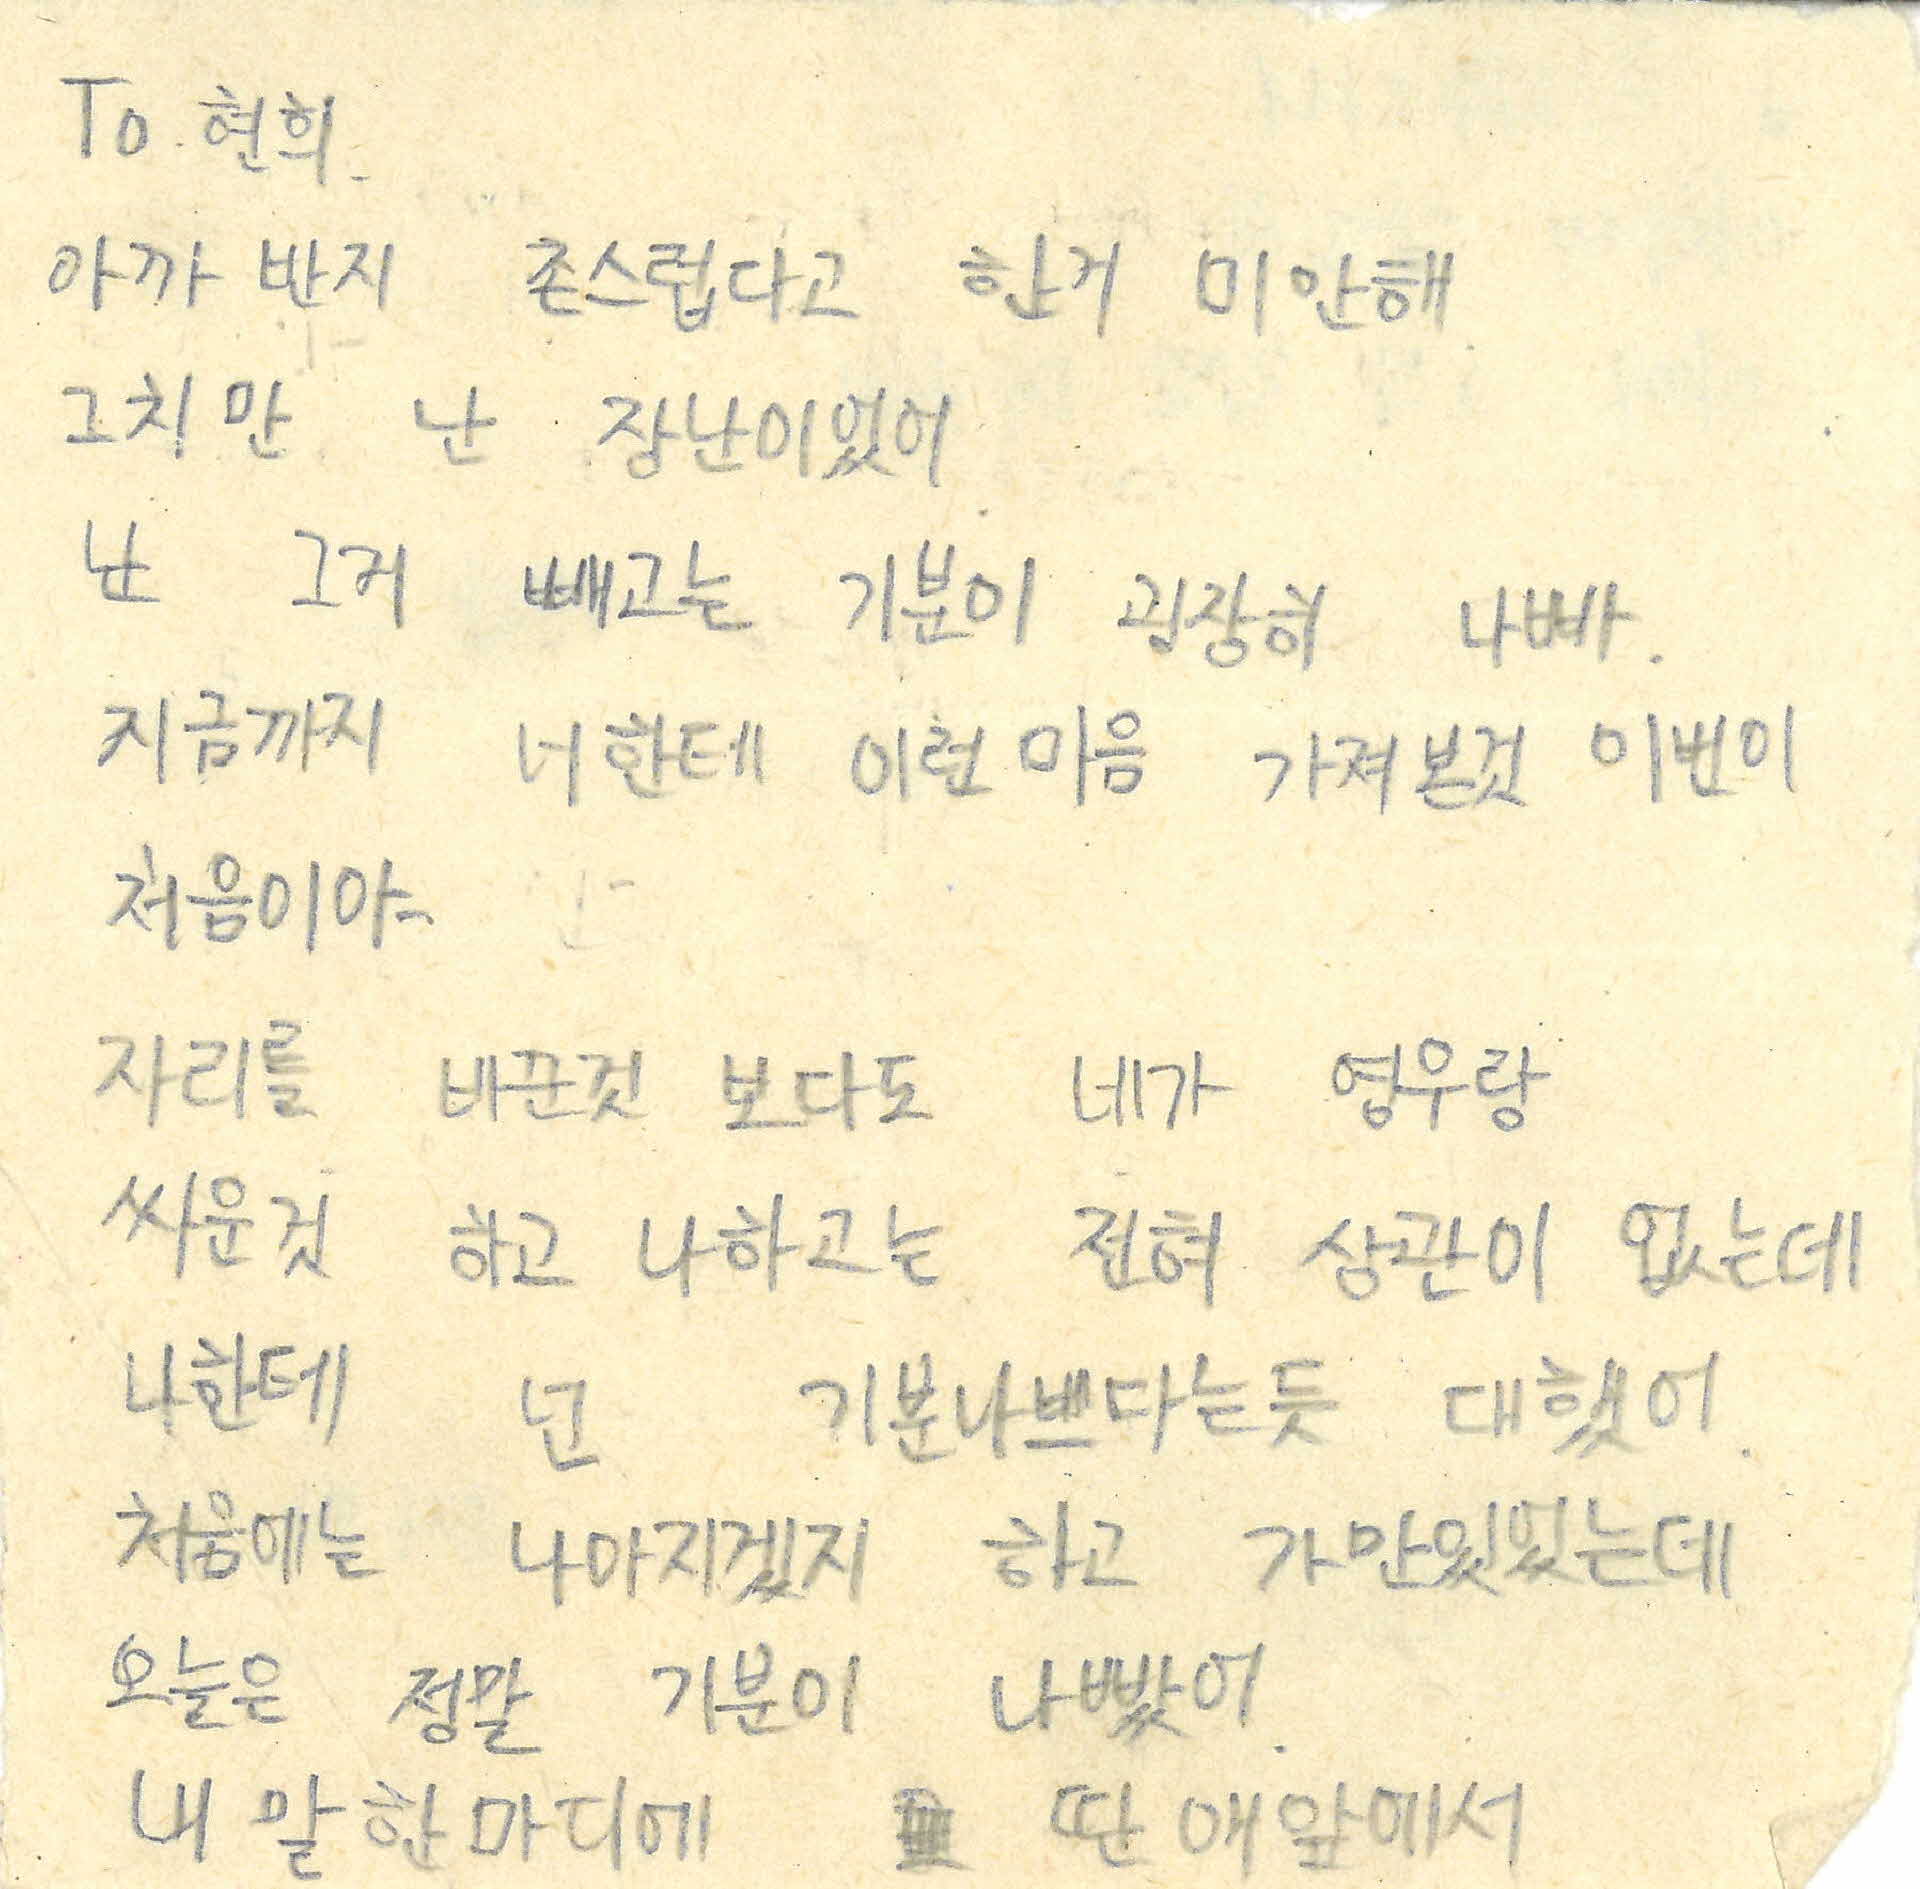 To. 현희.
아까 반지 촌스럽다고 한거 미안해.
그치만 난 장난이었어.
난 그거 빼고는 기분이 굉장히 나빠.
지금까지 너한테 이런 마음 가져본것 이번이
처음이야.
자리를 바꾼것 보다도 네가 영우랑
싸운것 하고 나하고는 전혀 상관이 없는데
나한테 넌 기분나쁘다는듯 대했어.
처음에는 나아지겠지 하고 가만있었는데
오늘은 정말 기분이 나빴어.
내 말 한마디에 딴 애 앞에서